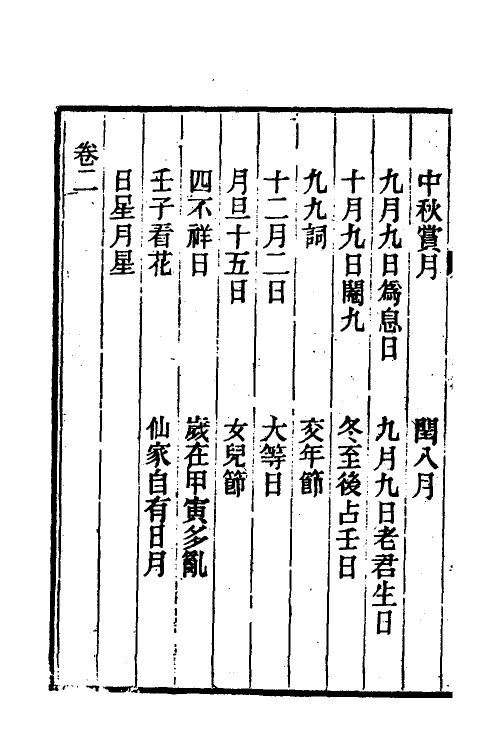 中秋賞月　閏八月
九月九日爲息日　九月九日老君生日
十月九日闍九　冬至後占壬日
九九詞　交年節
十二月二日　大等日
月旦十五日　女兒節
四不祥日　歲在甲寅多亂
壬子看花　仙家自有日月
日星月星
卷二